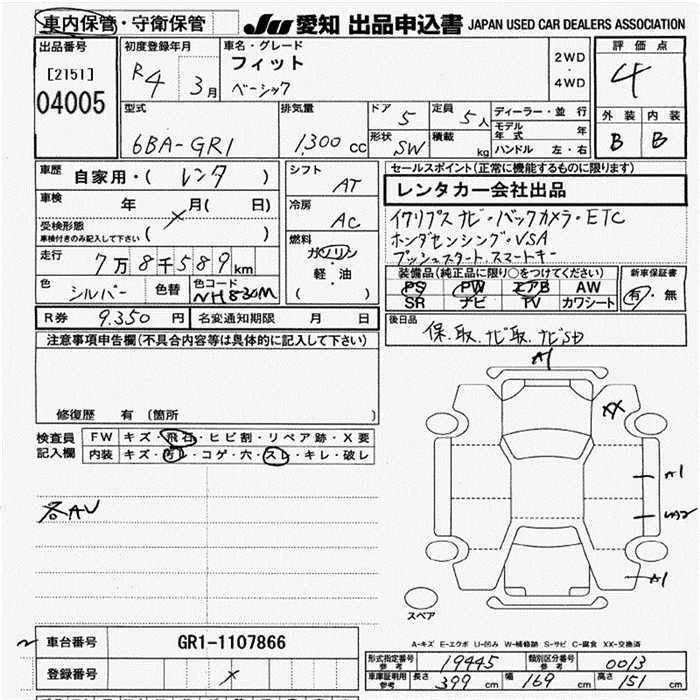 車内保管・守衛保管
JU 愛知 出品申込書 JAPAN USED CAR DEALERS ASSOCIATION
出品番号
[2151]
04005
初度登録年月
R4 3月
車名・グレード
フィット
ベーシック
2WD
・
4WD
評価点
4
外装 内装
B B
型式
6BA-GR1
排気量
1,300 cc
ドア 5
形状 SW
定員 5人
積載 kg
ディーラー・並行
モデル年式 年
ハンドル 左・右
車歴
自家用・( レンタ )
車検
年 月( 日)
受検形態
車検付きのみ記入して下さい ( )
走行
7万8千589km
色 シルバー 色替 色コード NH830M
シフト
AT
冷房
AC
燃料
ガソリン
・
軽・油
( )
セールスポイント(正常に機能するものに限ります)
レンタカー会社出品
イクリプス ナビ・バックカメラ・ETC
ホンダセンシング・VSA
プッシュスタート・スマートキー
装備品(純正品に限り○をつけてください)
PS PW エアB AW
SR ナビ TV カワシート
新車保証書
有・無
R券 9,350 円 名変通知期限 月 日
後日品
保、取、ナビ取、ナビSD
注意事項申告欄(不具合内容等は具体的に記入して下さい)
修復歴 有 (箇所 )
検査員
記入欄
FW キズ・飛石・ヒビ割・リペア跡・X要
内装 キズ・汚レ・コゲ・穴・スレ・キレ・破レ
各AU
A1
XX
A1
A1
スペア
A-キズ E-エクボ U-凹み W-補修跡 S-サビ C-腐食 XX-交換済
車台番号 GR1-1107866
登録番号
形式指定番号 参考 19445 類別区分番号 参考 0013
車庫証明用 参考 長さ 399 cm 幅 169 cm 高さ 151 cm